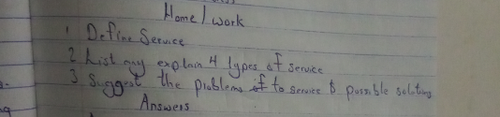 Home/work
1 Define Service
2 List any explain 4 types of service
3 Suggest the problems to service & possible solutions
Answers